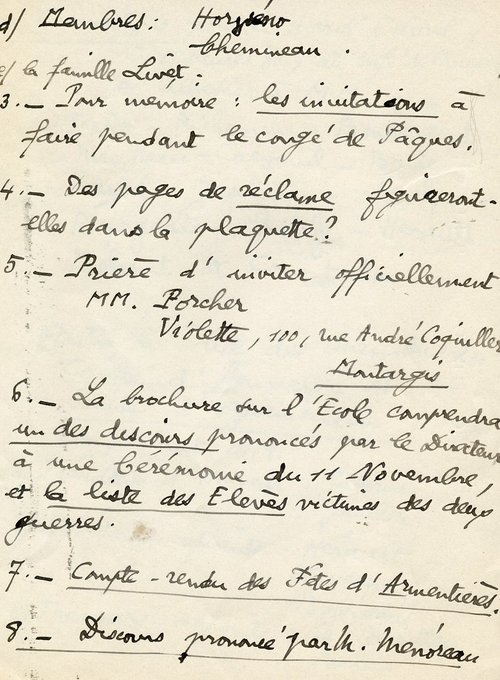 d/ Membres : Horséno
Chemineau .
e/ la famille Livet .
3._ Pour mémoire : les invitations à
faire pendant le congé de Pâques.
4._ Des pages de réclame figureront-
elles dans la plaquette ?
5._ Prière d'inviter officiellement
MM. Porcher
Violette, 100, rue André Coquillet
Montargis
6._ La brochure sur l'Ecole comprendra
un des discours prononcés par le Directeur
à une Cérémonie du 11 Novembre,
et la liste des Elèves victimes des deux
guerres.
7._ Compte-rendu des Fêtes d'Armentières.
8._ Discours prononcé par M. Menóreau